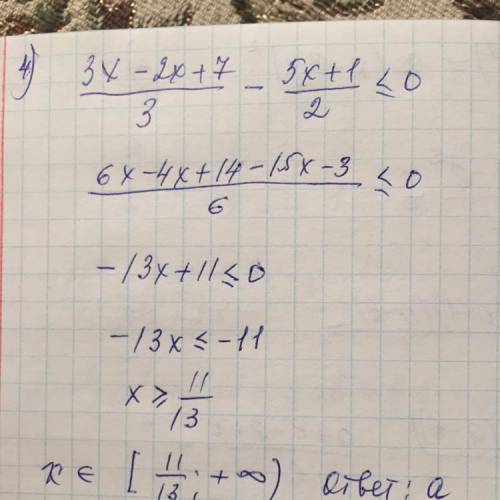 4) (3x - 2x + 7)/3 - (5x + 1)/2 ≤ 0
(6x - 4x + 14 - 15x - 3)/6 ≤ 0
-13x + 11 ≤ 0
-13x ≤ -11
x ≥ 11/13
x ∈ [11/13; +∞) ответ: a